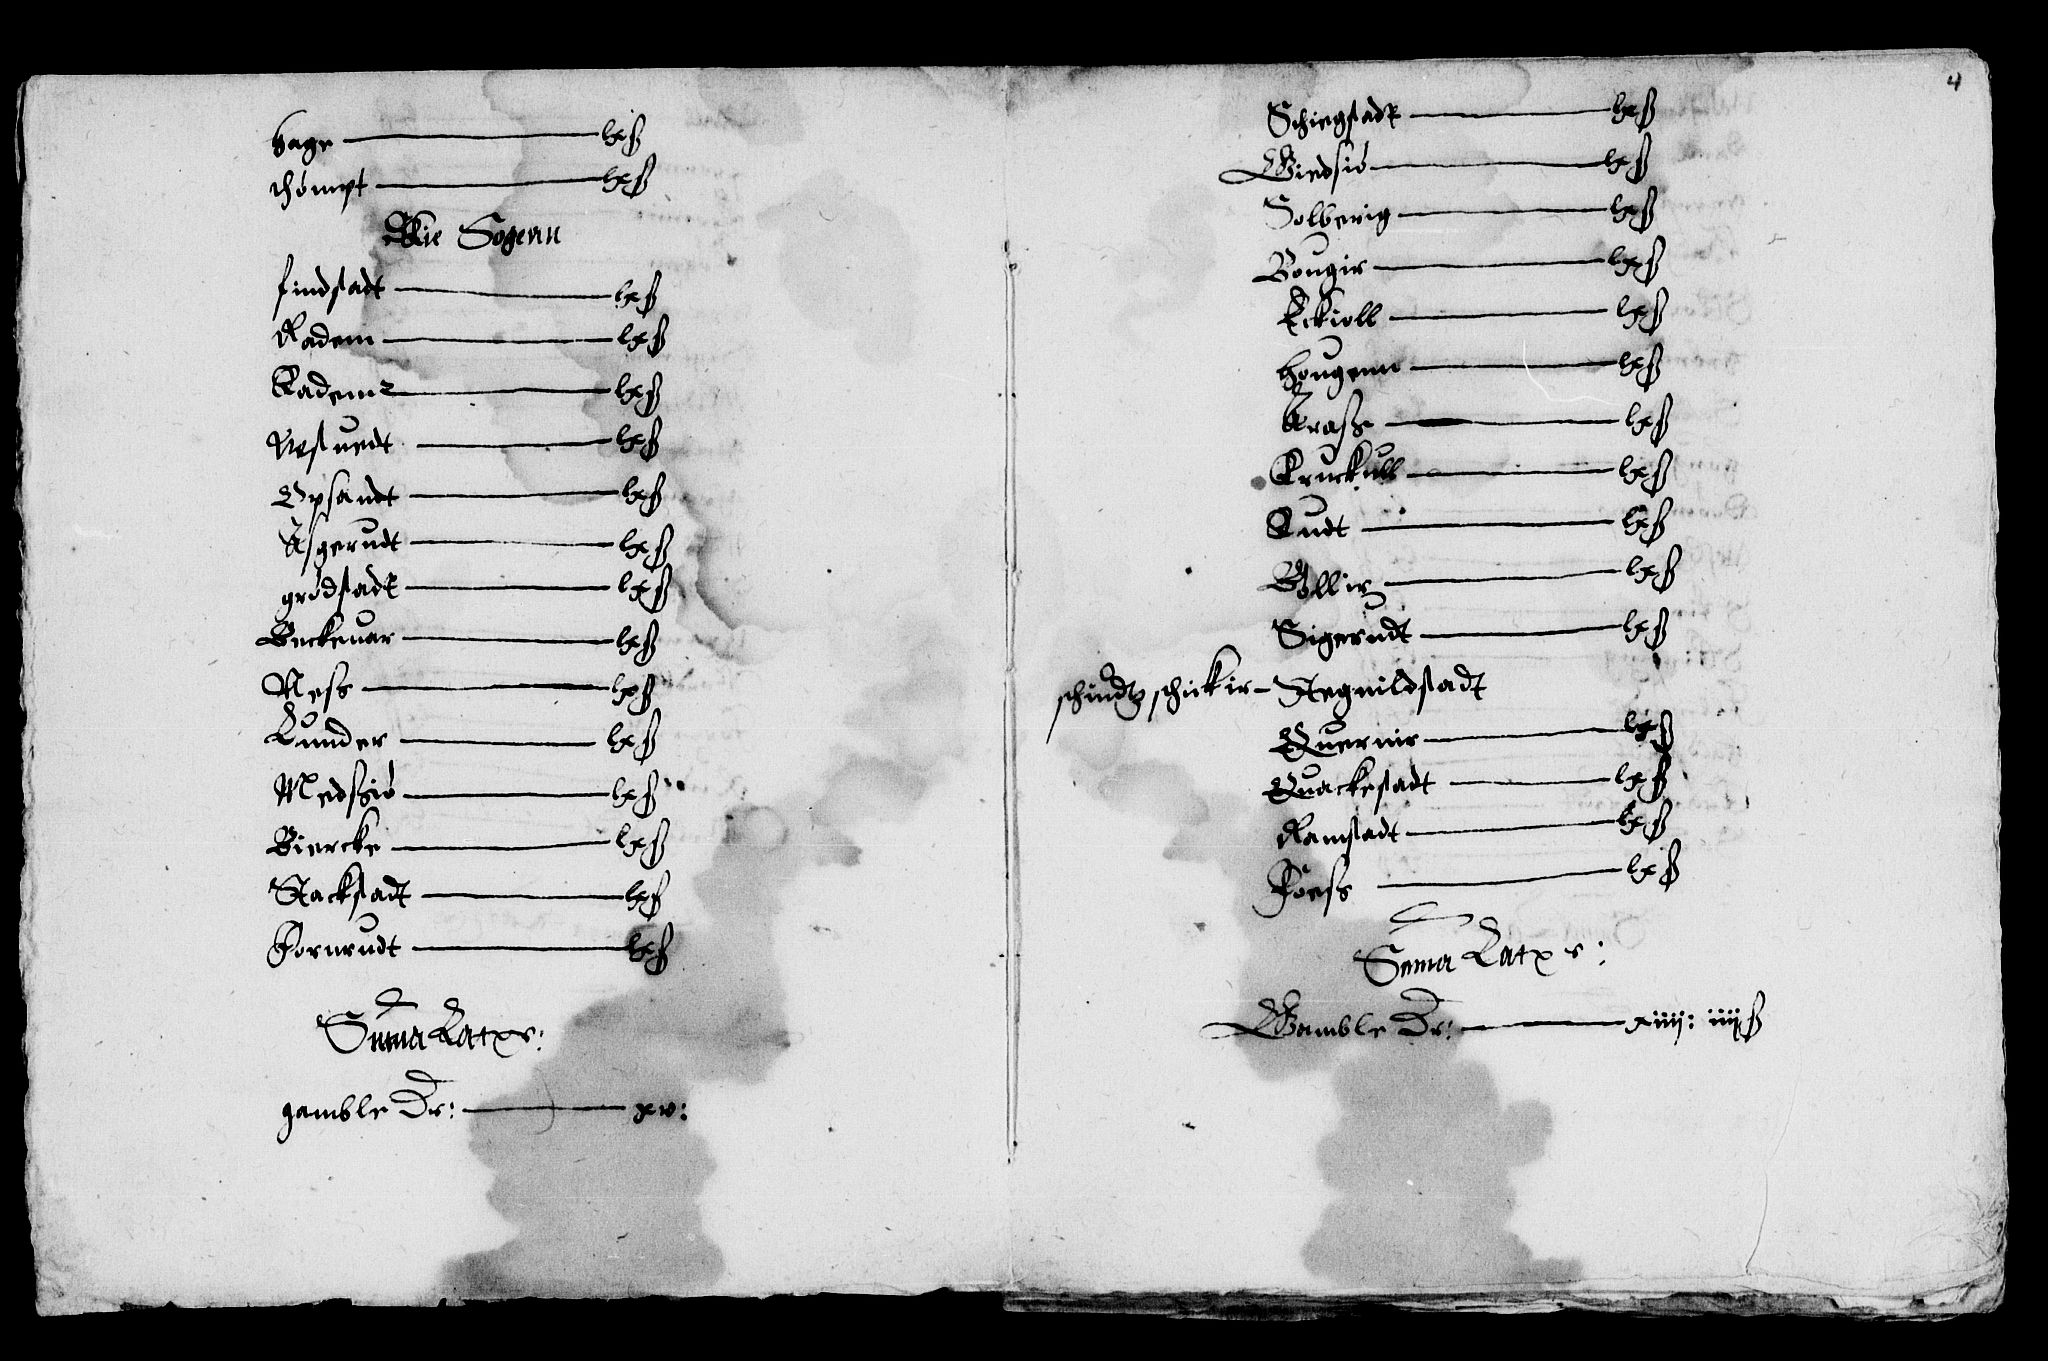 hage — lxß
thompt — lxß
Wie Sogenn
findstadt — lxß
Radem — lxß
Kadem — lxß
Nestuedt — lxß
Opsandt — lxß
Asgerudt — lxß
grødstadt — lxß
Beckeuar — lxß
Ness — lxß
Lunder — lxß
Medsiø — lxß
Biercke — lxß
Stackstadt — lxß
Fornrudt — lxß
Suma Latꝰ:
gamble Dr: — xv:
4
Schiegstadt — lxß
Wiedsiø — lxß
Solberig — lxß
Bougir — lxß
Eckioll — lxß
hougenn — lxß
Krass — lxß
Kruckull — lxß
Rudt — lxß
Bollir — lxß
Sigerudt — lxß
schindtz schickir — Stegnildstadt
Quernir — lxß
Quackestadt — lxß
Ramstadt — lxß
Foess — lxß
Suma Latꝰ:
Gamble Dr: — xiiij: iiijß